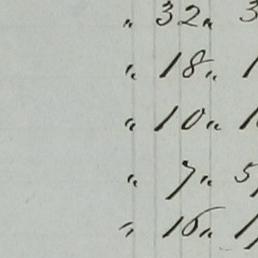 " 32 " 3
" 18 " 1
" 10 " 1
" 7 " 5
" 16 " 1